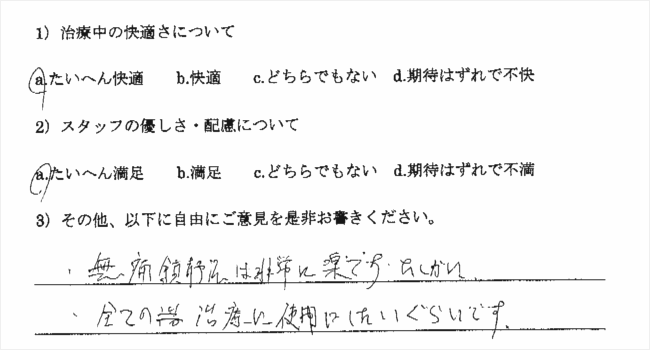 1）治療中の快適さについて
a.たいへん快適　b.快適　c.どちらでもない　d.期待はずれで不快
2）スタッフの優しさ・配慮について
a.たいへん満足　b.満足　c.どちらでもない　d.期待はずれで不満
3）その他、以下に自由にご意見を是非お書きください。
・無痛鎮静法は非常に楽です。たしかに
・全ての歯治療に使用したいぐらいです。